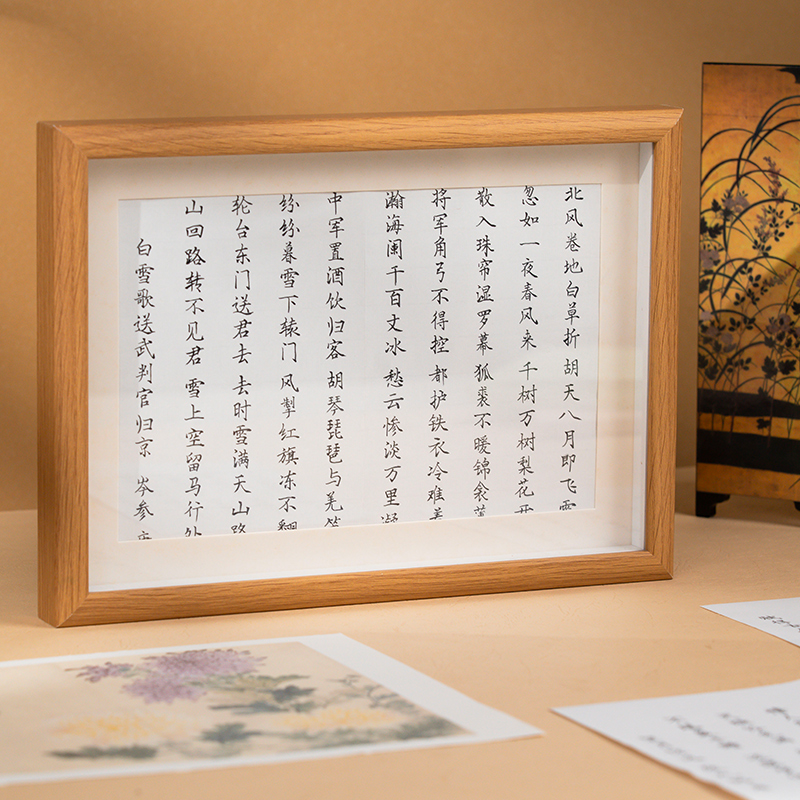 北风卷地白草折 胡天八月即飞雪
忽如一夜春风来 千树万树梨花开
散入珠帘湿罗幕 狐裘不暖锦衾薄
将军角弓不得控 都护铁衣冷难着
瀚海阑干百丈冰 愁云惨淡万里凝
中军置酒饮归客 胡琴琵琶与羌笛
纷纷暮雪下辕门 风掣红旗冻不翻
轮台东门送君去 去时雪满天山路
山回路转不见君 雪上空留马行处
白雪歌送武判官归京 岑参